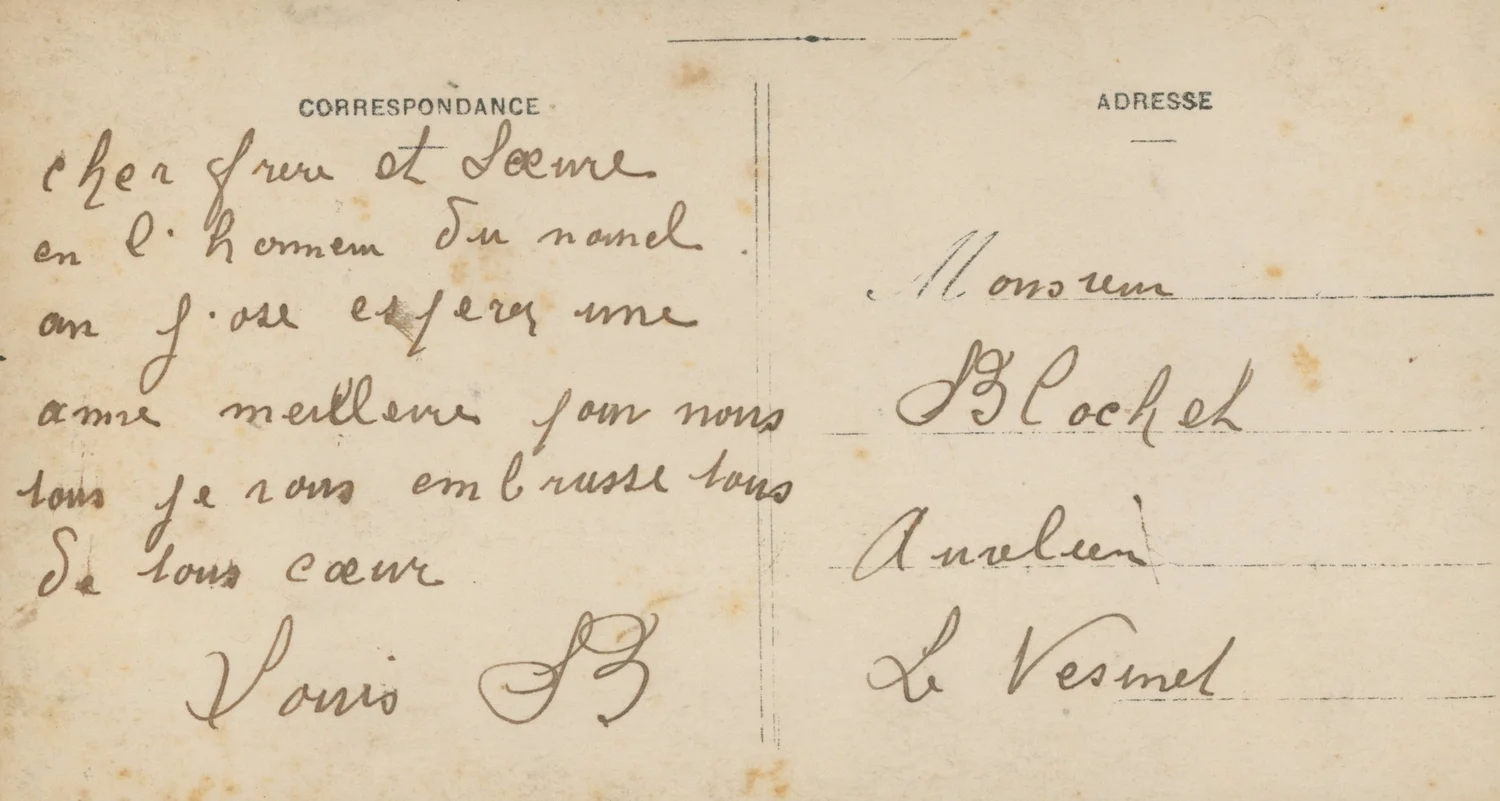 CORRESPONDANCE
cher frere et Sœure
en l'honneur du nouvel
an j'ose esperez une
anne meilleure pour nous
tous je vous embrasse tous
de tous cœur
Louis B
ADRESSE
Monsieur
Blochet
Aurelien
Le Vesinet